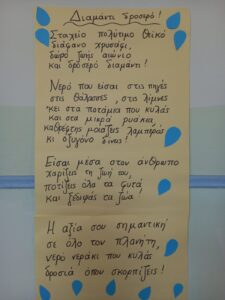 Διαμάντι δροσερό!
Στοιχείο πολύτιμο θεϊκό
διάφανο χρυσάφι,
δώρο ζωής αιώνιο
και δροσερό διαμάντι!
Νερό που είσαι στις πηγές
στις θάλασσες, στις λίμνες
'κει στα ποτάμια που κυλάς
και στα μικρά ρυάκια,
καθρέφτης μοιάζεις λαμπερός
κι οξυγόνο δίνεις!
Είσαι μέσα στον άνθρωπο
χαρίζεις τη ζωή του,
ποτίζεις όλα τα φυτά
και ξεδιψάς τα ζώα!
Η αξία σου σημαντική
σε όλο τον πλανήτη,
νερό νεράκι που κυλάς
δροσιά όπου σκορπίζεις!